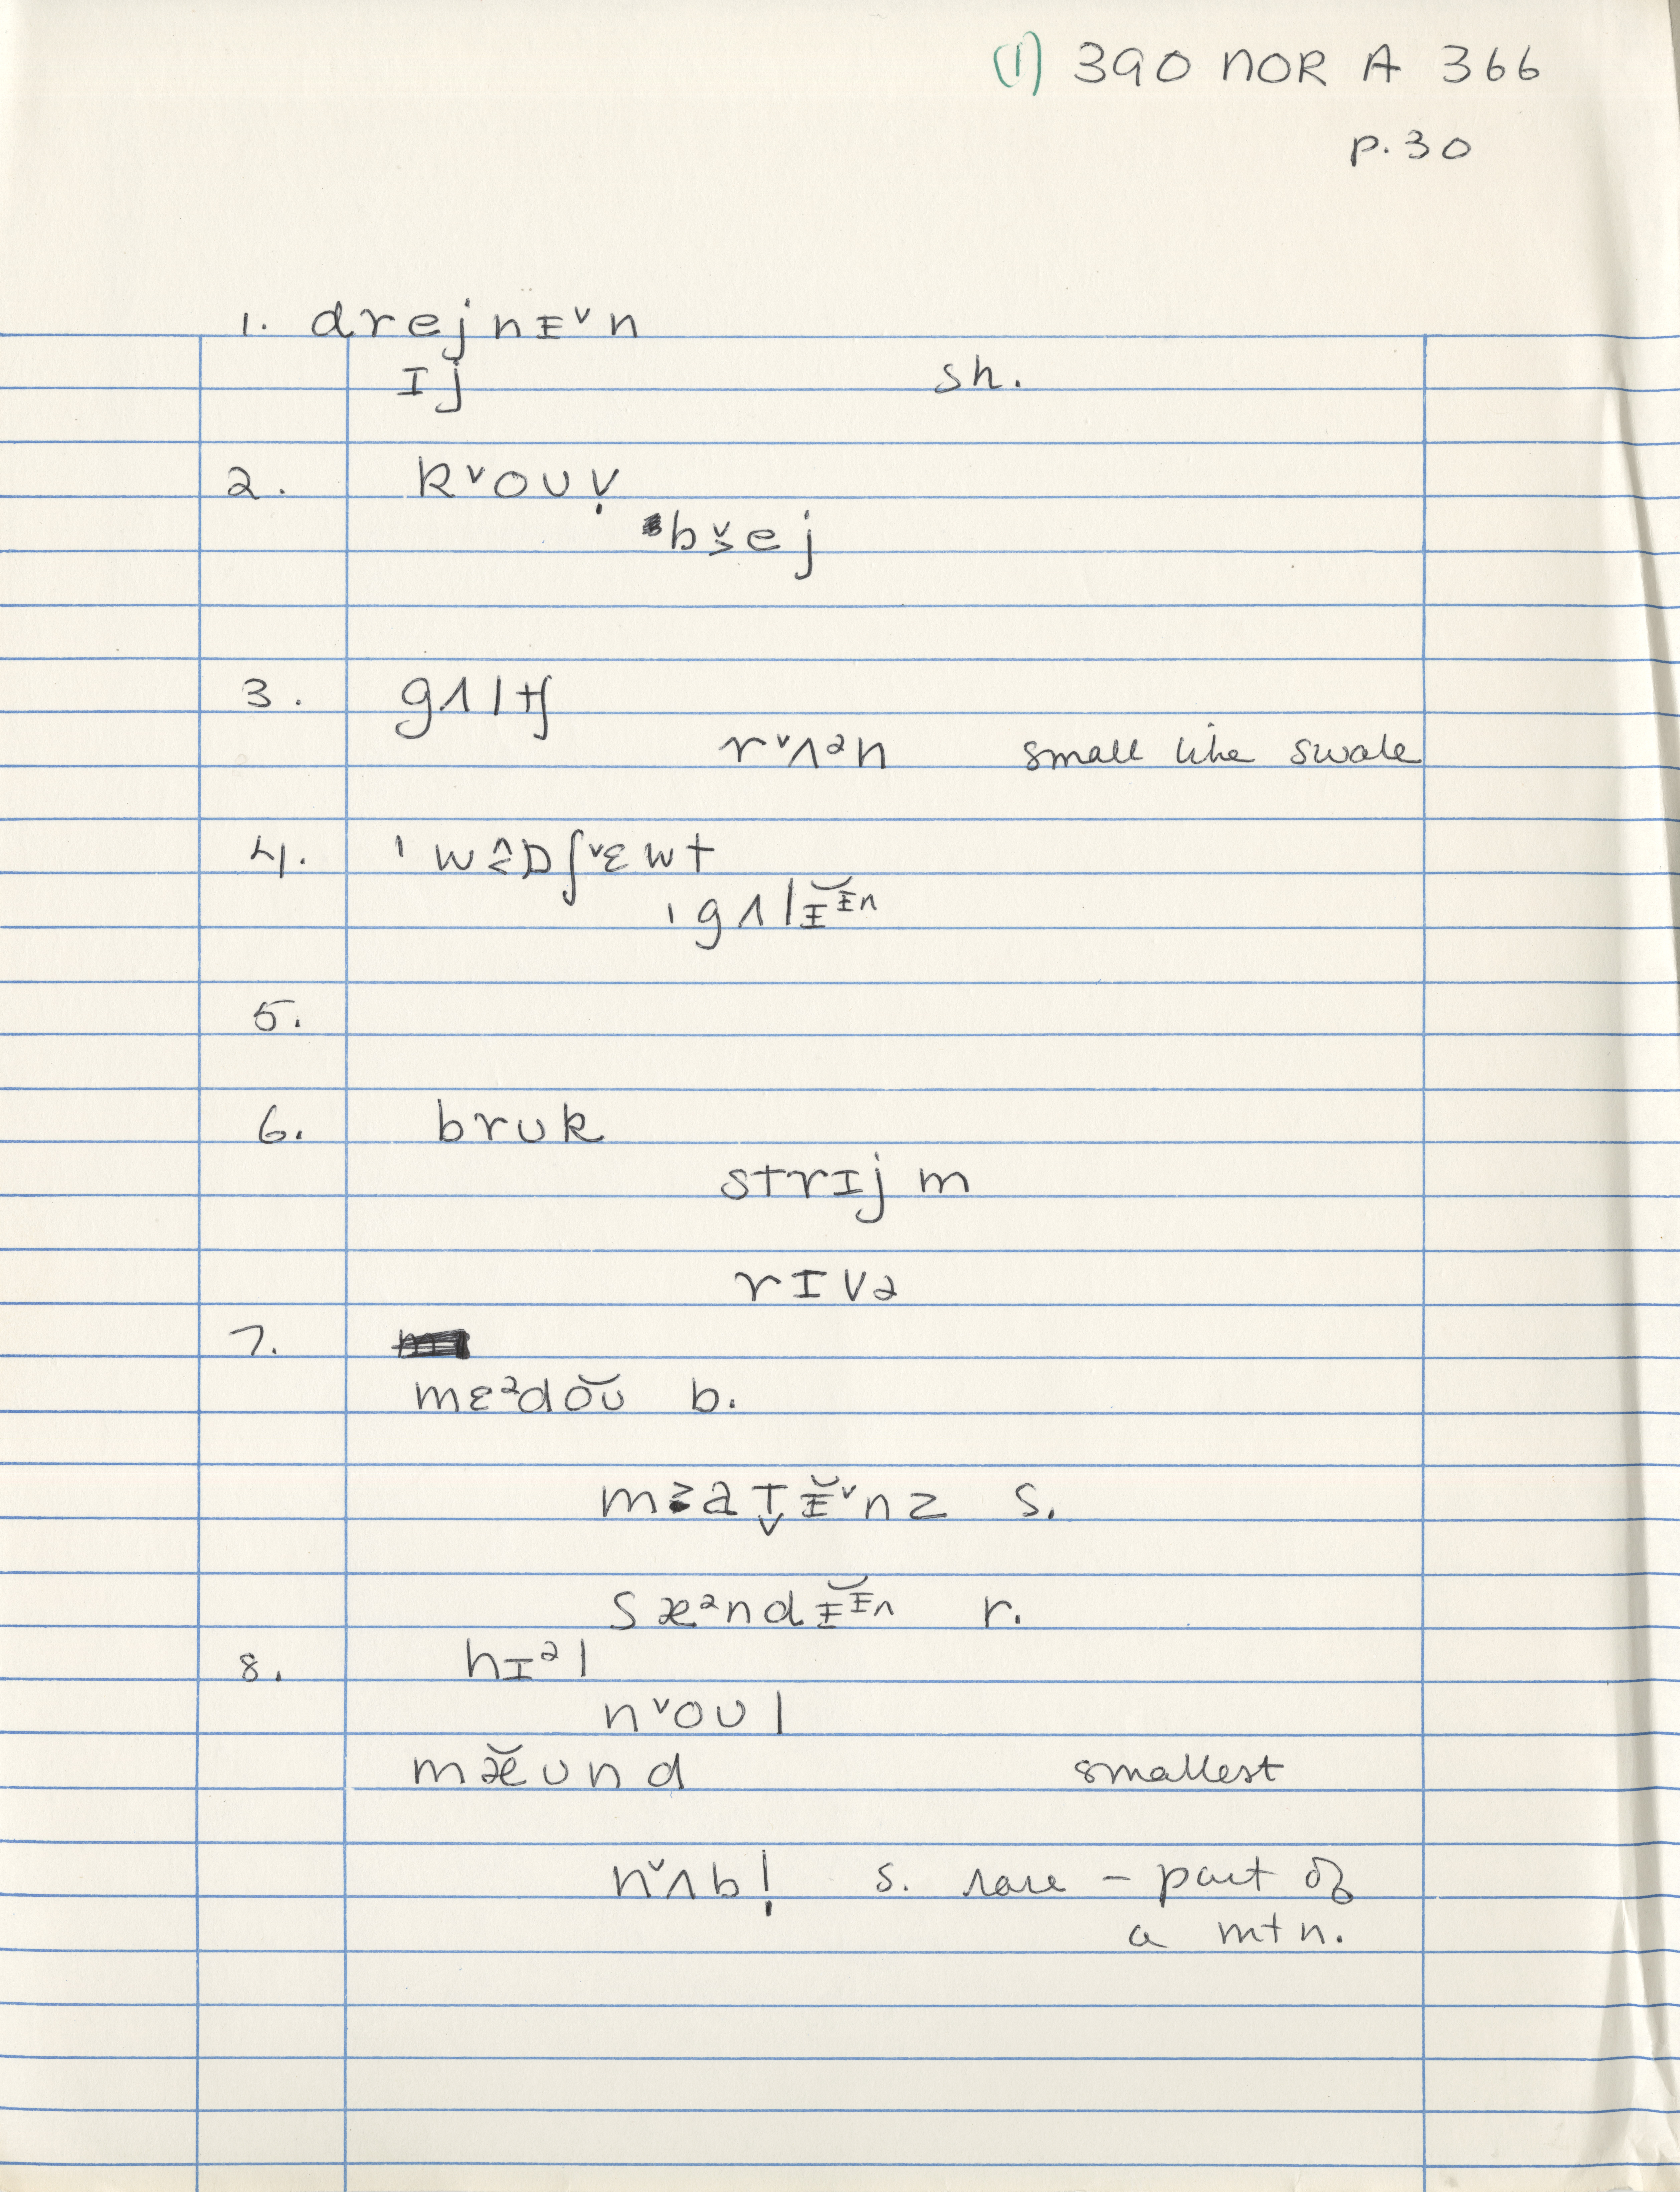 (1) 390 NOR A 366
p. 30
1. drejnɪ̵ᵛn
ɪj sh.
2. kᵛoʊṿ
bᵛ̬ej
3. gʌltʃ
rᵛʌᵊn small like swale
4. ˈwɒʃᵛɛwt
ˌgʌlɪ̵̆ɪ̵n
5.
6. brʊk
strɪjm
rɪvə
7.
mɛᵊdŏʊ b.
mat̬ɪ̵̆ᵛnz s.
sæᵊndɪ̵̆ɪ̵n r.
8. hɪᵊl
nᵛoʊl
mæ̆ʊnd smallest
nᵛʌbḷ s. rare – part of
a mtn.